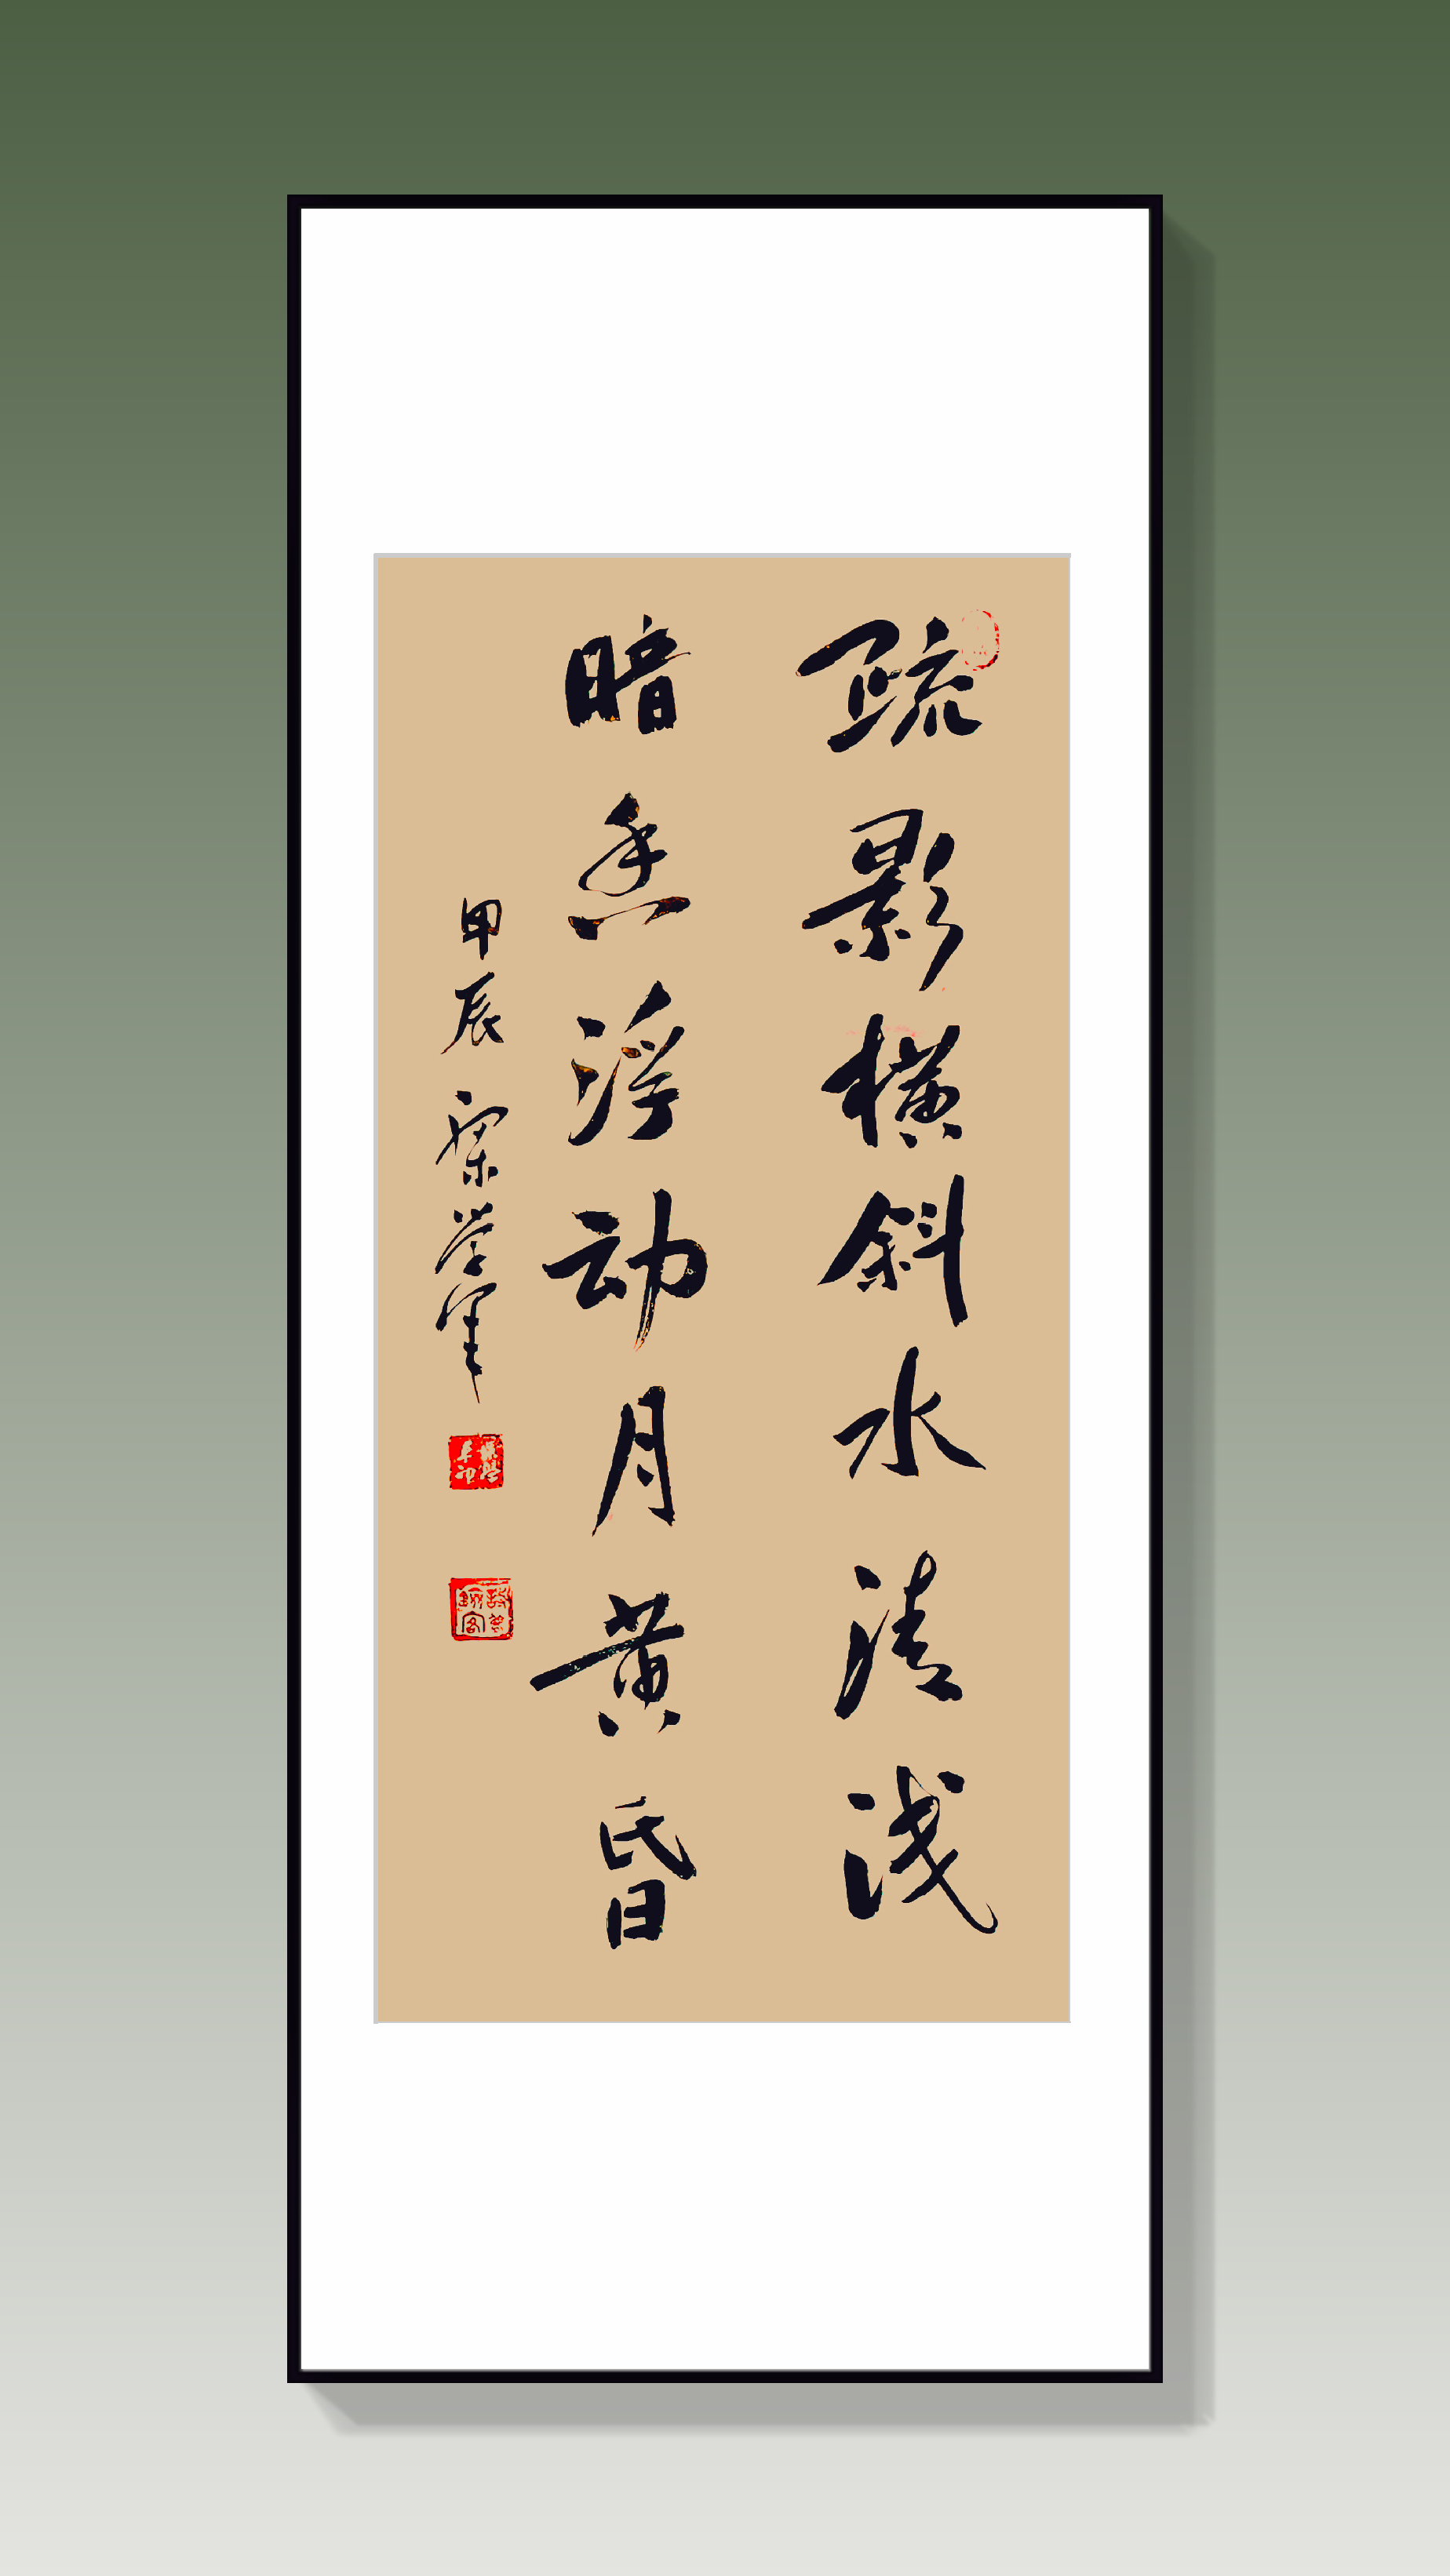 疏影横斜水清浅
暗香浮动月黄昏
甲辰 梁学军